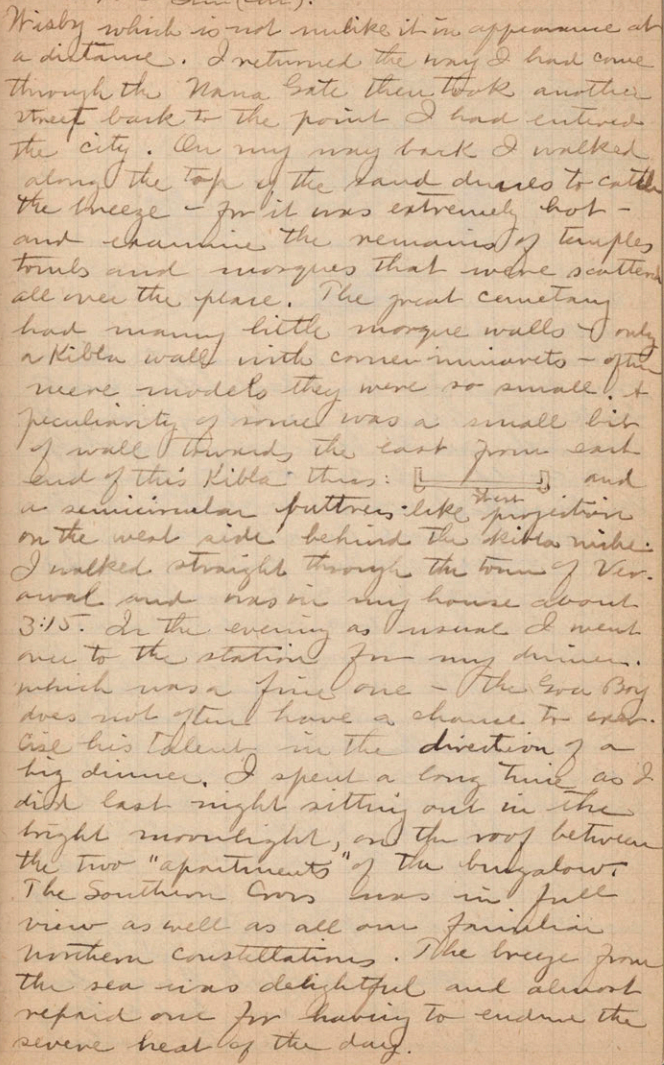 Wisby which is not unlike it in appearance at
a distance. I returned the way I had come
through the Nana Gate then took another
street back to the point I had entered
the city. On my way back I walked
along the top of the sand dunes to catch
the breeze – for it was extremely hot –
and examine the remains of temples
tombs and mosques that were scattered
all over the place. The great cemetary
had many little mosque walls – only
a Kibla wall with corner minarets – often
mere models they were so small. A
peculiarity of some was a small bit
of wall towards the east from each
end of this Kibla thus: and
a semicircular buttress-like short projection
on the west side behind the Kibla niche.
I walked straight through the town of Ver-
awal and was in my house about
3:15. In the evening as usual I went
over to the station for my dinner.
which was a fine one – the Goa Boy
does not often have a chance to exer-
cise his talent in the direction of a
big dinner. I spent a long time as I
did last night sitting out in the
bright moonlight, on the roof between
the two "apartments" of the bungalow.
The Southern Cross was in full
view as well as all our familiar
northern constellations. The breeze from
the sea was delightful and almost
repaid one for having to endure the
severe heat of the day.